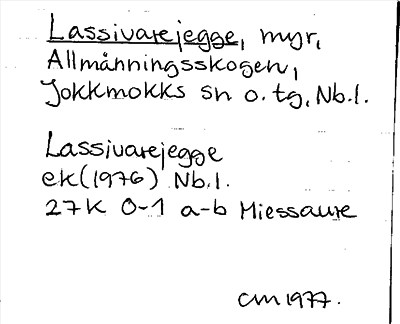 Lassivarejegge, myr,
Allmänningsskogen,
Jokkmokks sn o. tg, Nb.l.
Lassivarejegge
ek(1976) Nb.l.
27K 0-1 a-b Miessaure
CM 1977.